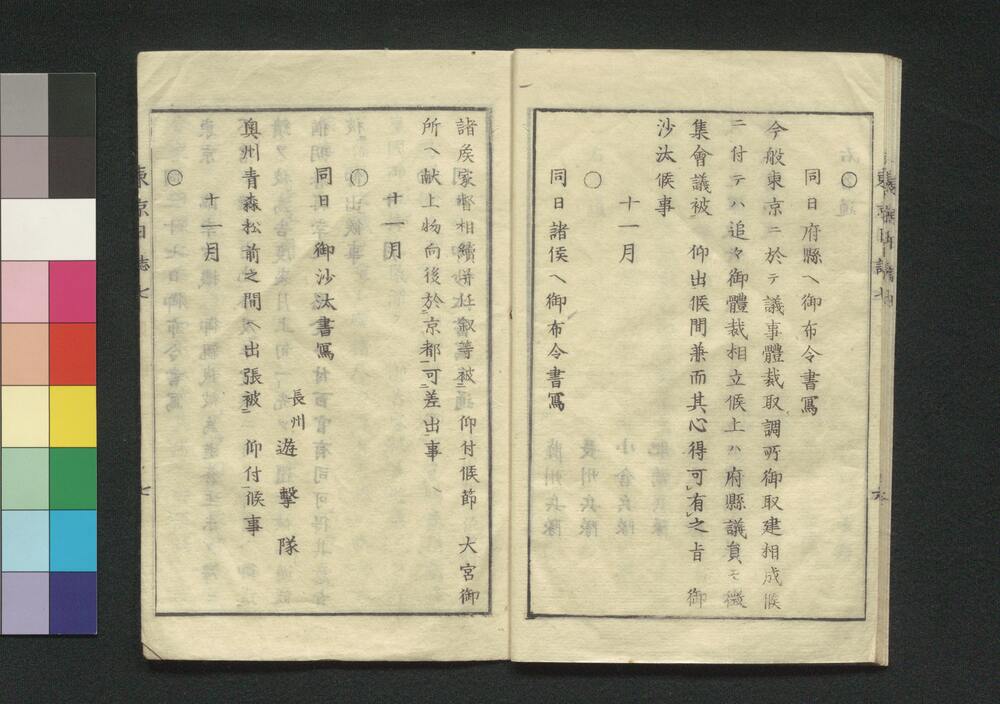 ○
同日府縣ヘ御布令書寫
今般東京ニ於テ議事體裁取調所御取建相成候
ニ付テハ追々御體裁相立候上ハ府縣議員ヲモ徴
集會議被　仰出候間兼而其心得可有之旨　御
沙汰候事
十一月
○
同日諸侯ヘ御布令書寫
諸矦家督相續併任叙等被　仰付候節　大宮御
所ヘ献上物向後於京都可差出事
十一月
○
同日御沙汰書寫
長州　遊擊隊
奥州青森松前之間ヘ出張被　仰付候事
十一月
○
東京日誌七
七